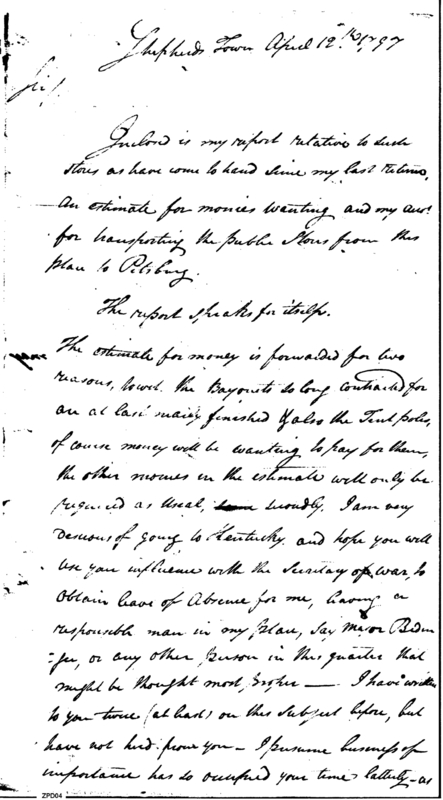 Shepherds Town April 12th 1797
Sir!
Inclosed is my report relative to such
stores as have come to hand since my last return,
An estimate for monies wanting and my acct.
for transporting the public Stores from this
place to Pitsburg.
The report speaks for itself.
The estimate for money is forwarded for two
reasons, towit. the Bayonets so long contracted for
are at last nearly finished & also the Tent poles,
of course money will be wanting to pay for them,
the other monies in the estimate will only be
required as usual, monthly. I am very
desirous of going to Kentucky and hope you will
use your influence with the Secretary of war, to
obtain leave of Absence for me, leaving a
responsible man in my place, say Major Bedin
=ger, or any other person in this quarter that
might be thought most proper — I have written
to you twice (at least) on this subject before, but
have not heard from you — I presume business of
importance has so occupied your time latterly — as
ZPD04